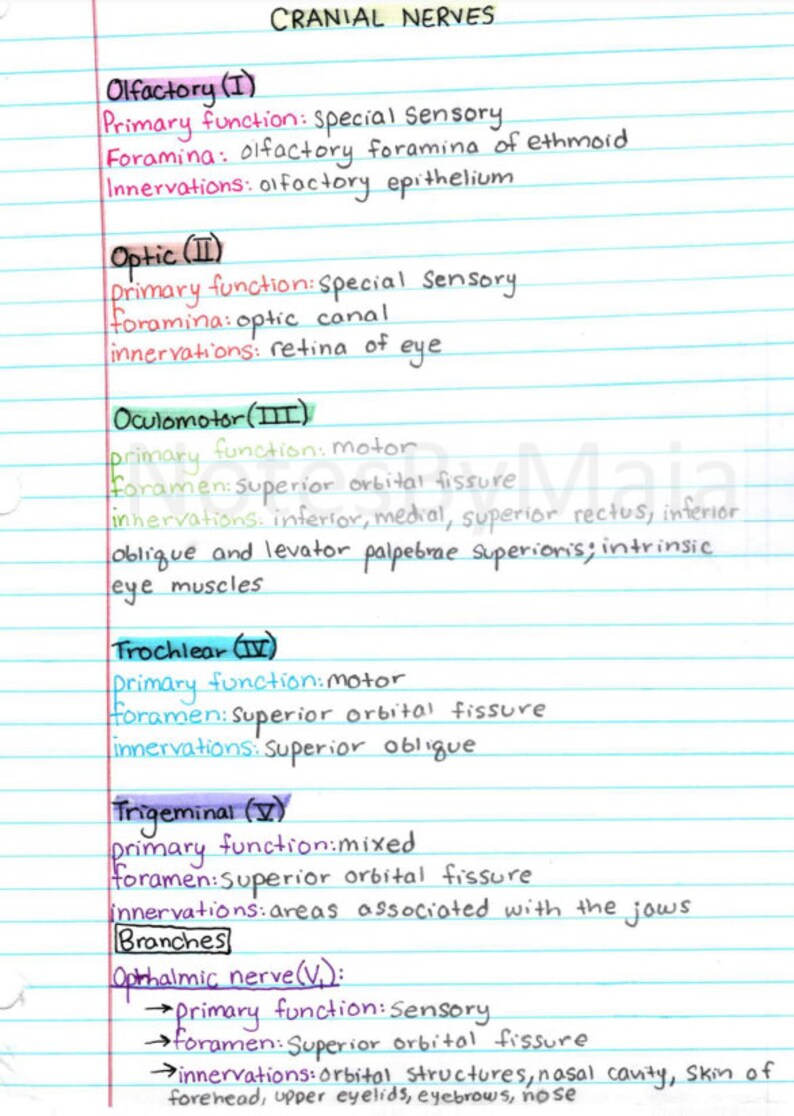 CRANIAL NERVES
Olfactory (I)
Primary function: special sensory
Foramina: olfactory foramina of ethmoid
Innervations: olfactory epithelium
Optic (II)
primary function: special sensory
foramina: optic canal
innervations: retina of eye
Oculomotor (III)
primary function: motor
foramen: superior orbital fissure
innervations: inferior, medial, superior rectus, inferior
oblique and levator palpebrae superioris; intrinsic
eye muscles
NotesByMaja
Trochlear (IV)
primary function: motor
foramen: superior orbital fissure
innervations: superior oblique
Trigeminal (V)
primary function: mixed
foramen: superior orbital fissure
innervations: areas associated with the jaws
Branches
Opthalmic nerve (V₁):
→ primary function: sensory
→ foramen: Superior orbital fissure
→ innervations: orbital structures, nasal cavity, skin of
forehead, upper eyelids, eyebrows, nose